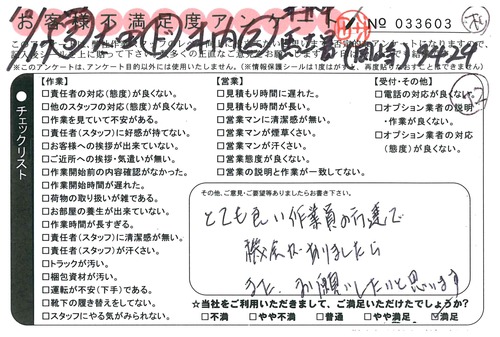 お客様不満足度アンケート
No 033603
※このアンケートは、アンケート目的以外には使用いたしません。(※情報保護シールは1度がすと、再度貼りなおすことはできません)
チェックリスト
【作業】
□責任者の対応(態度)が良くない。
□他のスタッフの対応(態度)が良くない。
□作業を見ていて不安がある。
□責任者(スタッフ)に好感が持てない。
□お客様への挨拶が出来ていない。
□ご近所への挨拶・気遣いが無い。
□作業開始前の内容確認がなかった。
□作業開始時間が遅れた。
□荷物の取り扱いが雑である。
□お部屋の養生が出来ていない。
□作業時間が長すぎる。
□責任者(スタッフ)に清潔感が無い。
□責任者(スタッフ)が汗くさい。
□トラックが汚い。
□梱包資材が汚い。
□運転が不安(下手)である。
□靴下の履き替えをしてない。
□スタッフにやる気がみられない。
【営業】
□見積もり時間に遅れた。
□見積もり時間が長い。
□営業マンに清潔感が無い。
□営業マンが煙草くさい。
□営業マンが汗くさい。
□営業態度が良くない。
□営業の説明と作業が一致してない。
【受付・その他】
□電話の対応が良くない。
□オプション業者の説明・作業が良くない。
□オプション業者の対応(態度)が良くない。
その他、ご意見・ご要望等ありましたらお書き下さい。
とても良い作業員の方達で
機会がありましたら
また、お願いしたいと思います
☆当社をご利用いただきまして、ご満足いただけたでしょうか?
□不満 □やや不満 □普通 □やや満足 ☑満足